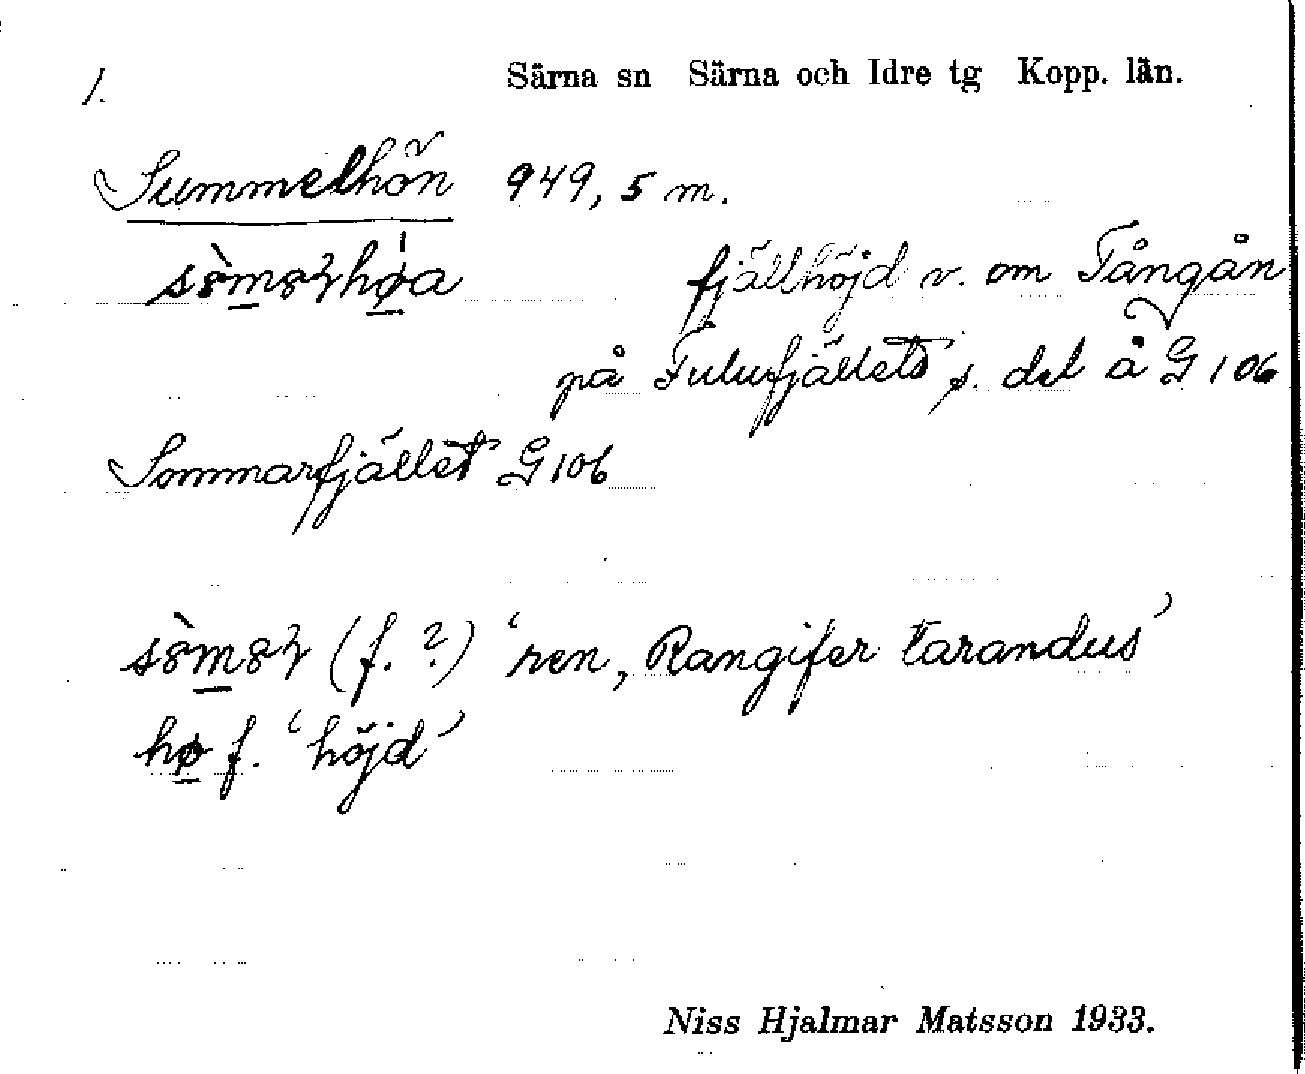 1. Särna sn Särna och Idre tg Kopp. län.
Summelhön 949,5 m.
fjällhöjd v. om Tångån
på Fulufjällets s. del å G 106
Sommarfjället G 106
(f. ?) 'ren, Rangifer tarandus'
hø f. 'höjd'
Niss Hjalmar Matsson 1933.